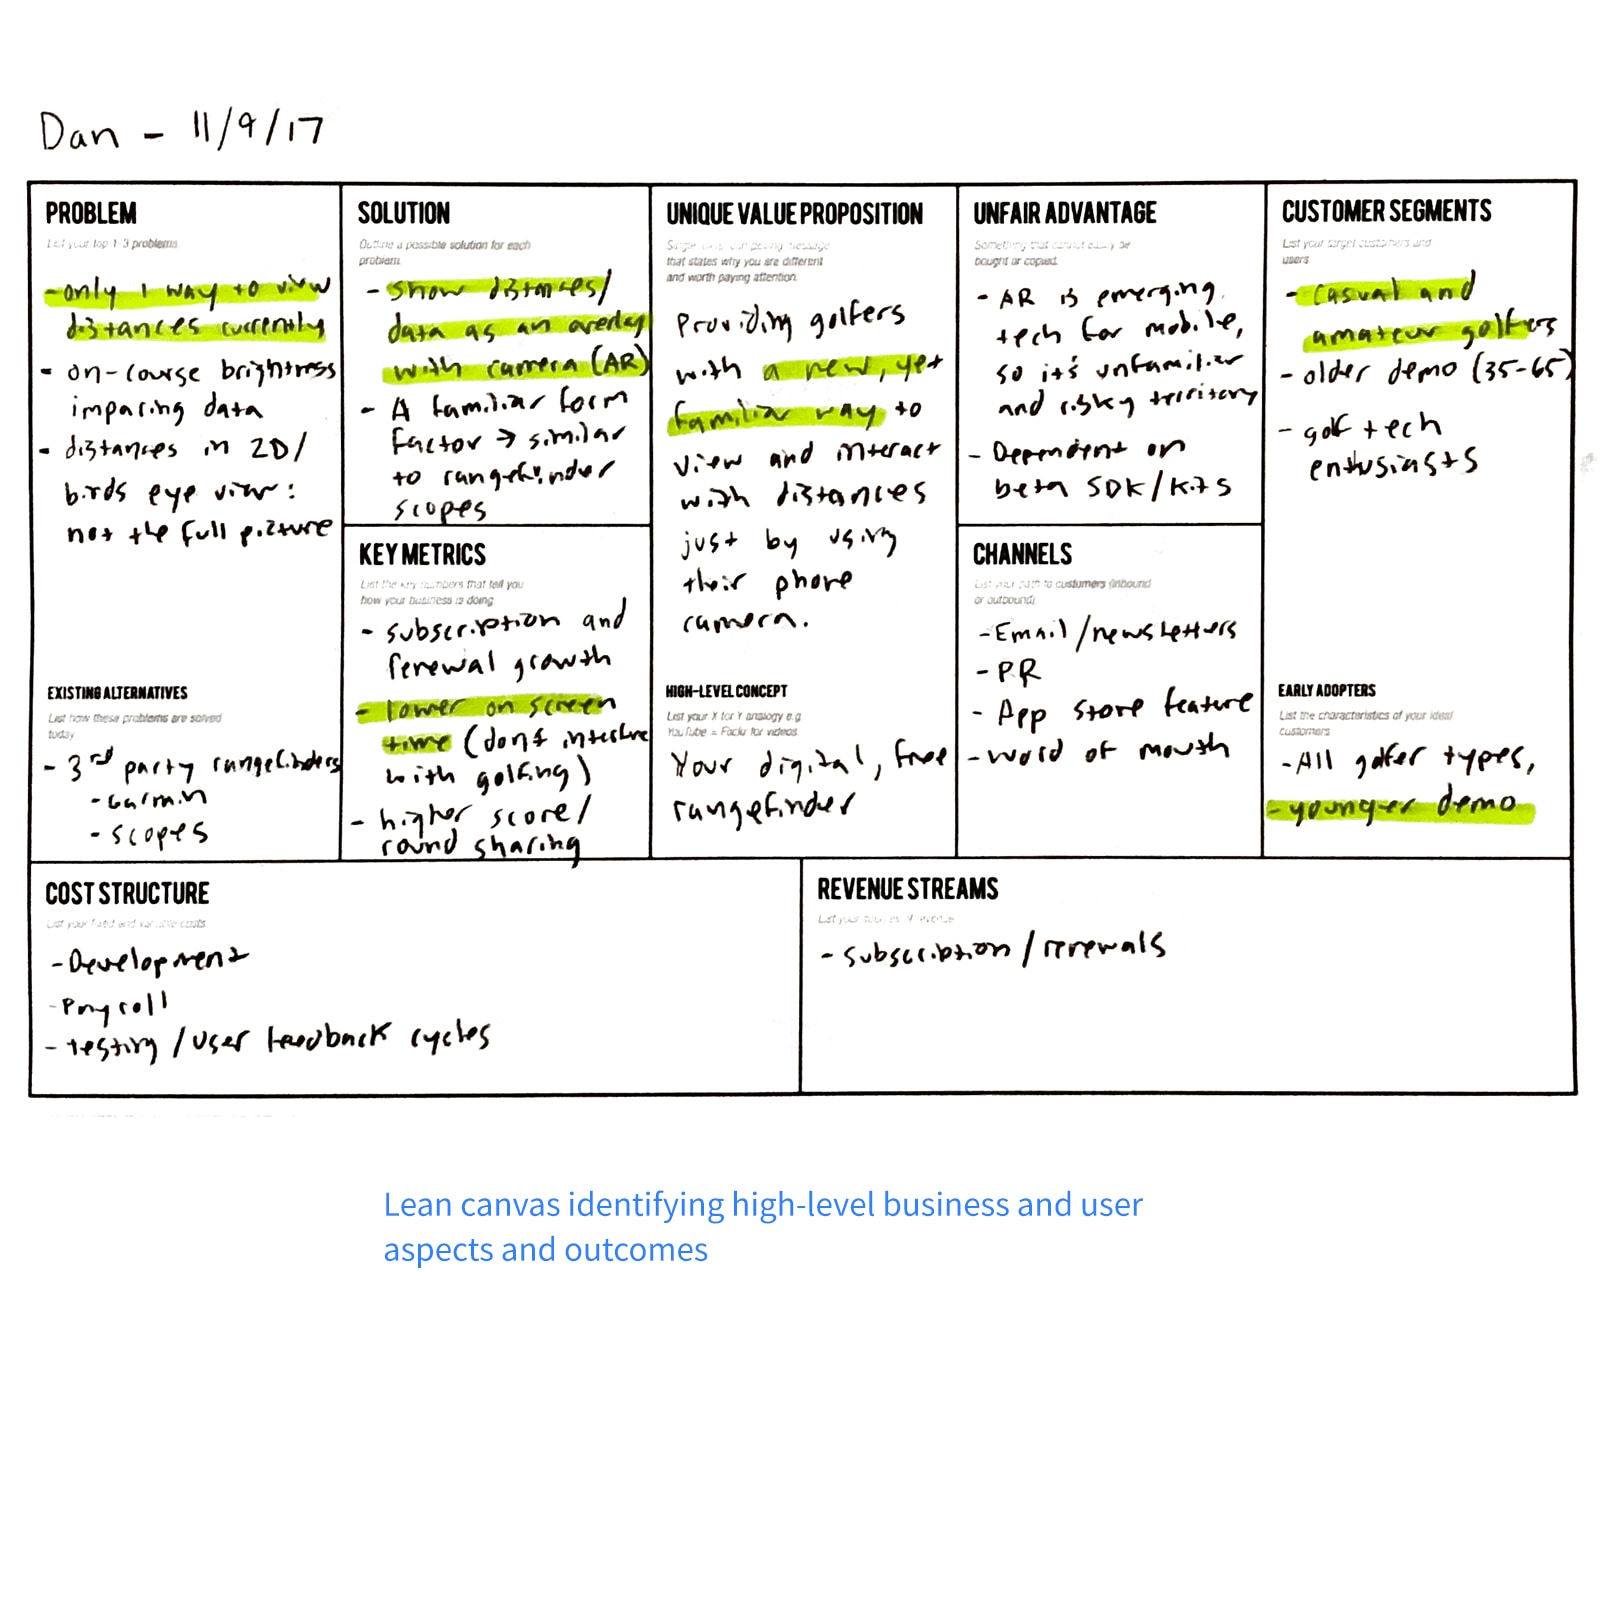 Dan - 11/9/17
PROBLEM
List your top 1-3 problems
- only 1 way to view
distances currently
- on-course brightness
impacing data
- distances in 2D/
birds eye view:
not the full picture
EXISTING ALTERNATIVES
List how these problems are solved
today
- 3rd party rangefinders
- Garmin
- scopes
SOLUTION
Outline a possible solution for each
problem.
- show distances/
data as an overlay
with camera (AR)
- A familiar form
factor → similar
to rangefinder
scopes
KEY METRICS
List the key numbers that tell you
how your business is doing
- subscription and
renewal growth
- lower on screen
time (don't interfere
with golfing)
- higher score/
round sharing
UNIQUE VALUE PROPOSITION
Single, clear, compelling message
that states why you are different
and worth paying attention.
Providing golfers
with a new, yet
familiar way to
view and interact
with distances
just by using
their phone
camera.
HIGH-LEVEL CONCEPT
List your X for Y analogy e.g.
YouTube = Flickr for videos.
Your digital, free
rangefinder
UNFAIR ADVANTAGE
Something that cannot easily be
bought or copied.
- AR is emerging
tech for mobile,
so it's unfamiliar
and risky territory
- Dependent on
beta SDK/Kits
CHANNELS
List your path to customers (inbound
or outbound)
- Email/newsletters
- PR
- App store feature
- word of mouth
CUSTOMER SEGMENTS
List your target customers and
users
- casual and
amateur golfers
- older demo (35-65)
- golf tech
enthusiasts
EARLY ADOPTERS
List the characteristics of your ideal
customers
- All golfer types,
- younger demo
COST STRUCTURE
List your fixed and variable costs
- Development
- Payroll
- testing/user feedback cycles
REVENUE STREAMS
List your sources of revenue
- subscription/renewals
Lean canvas identifying high-level business and user
aspects and outcomes